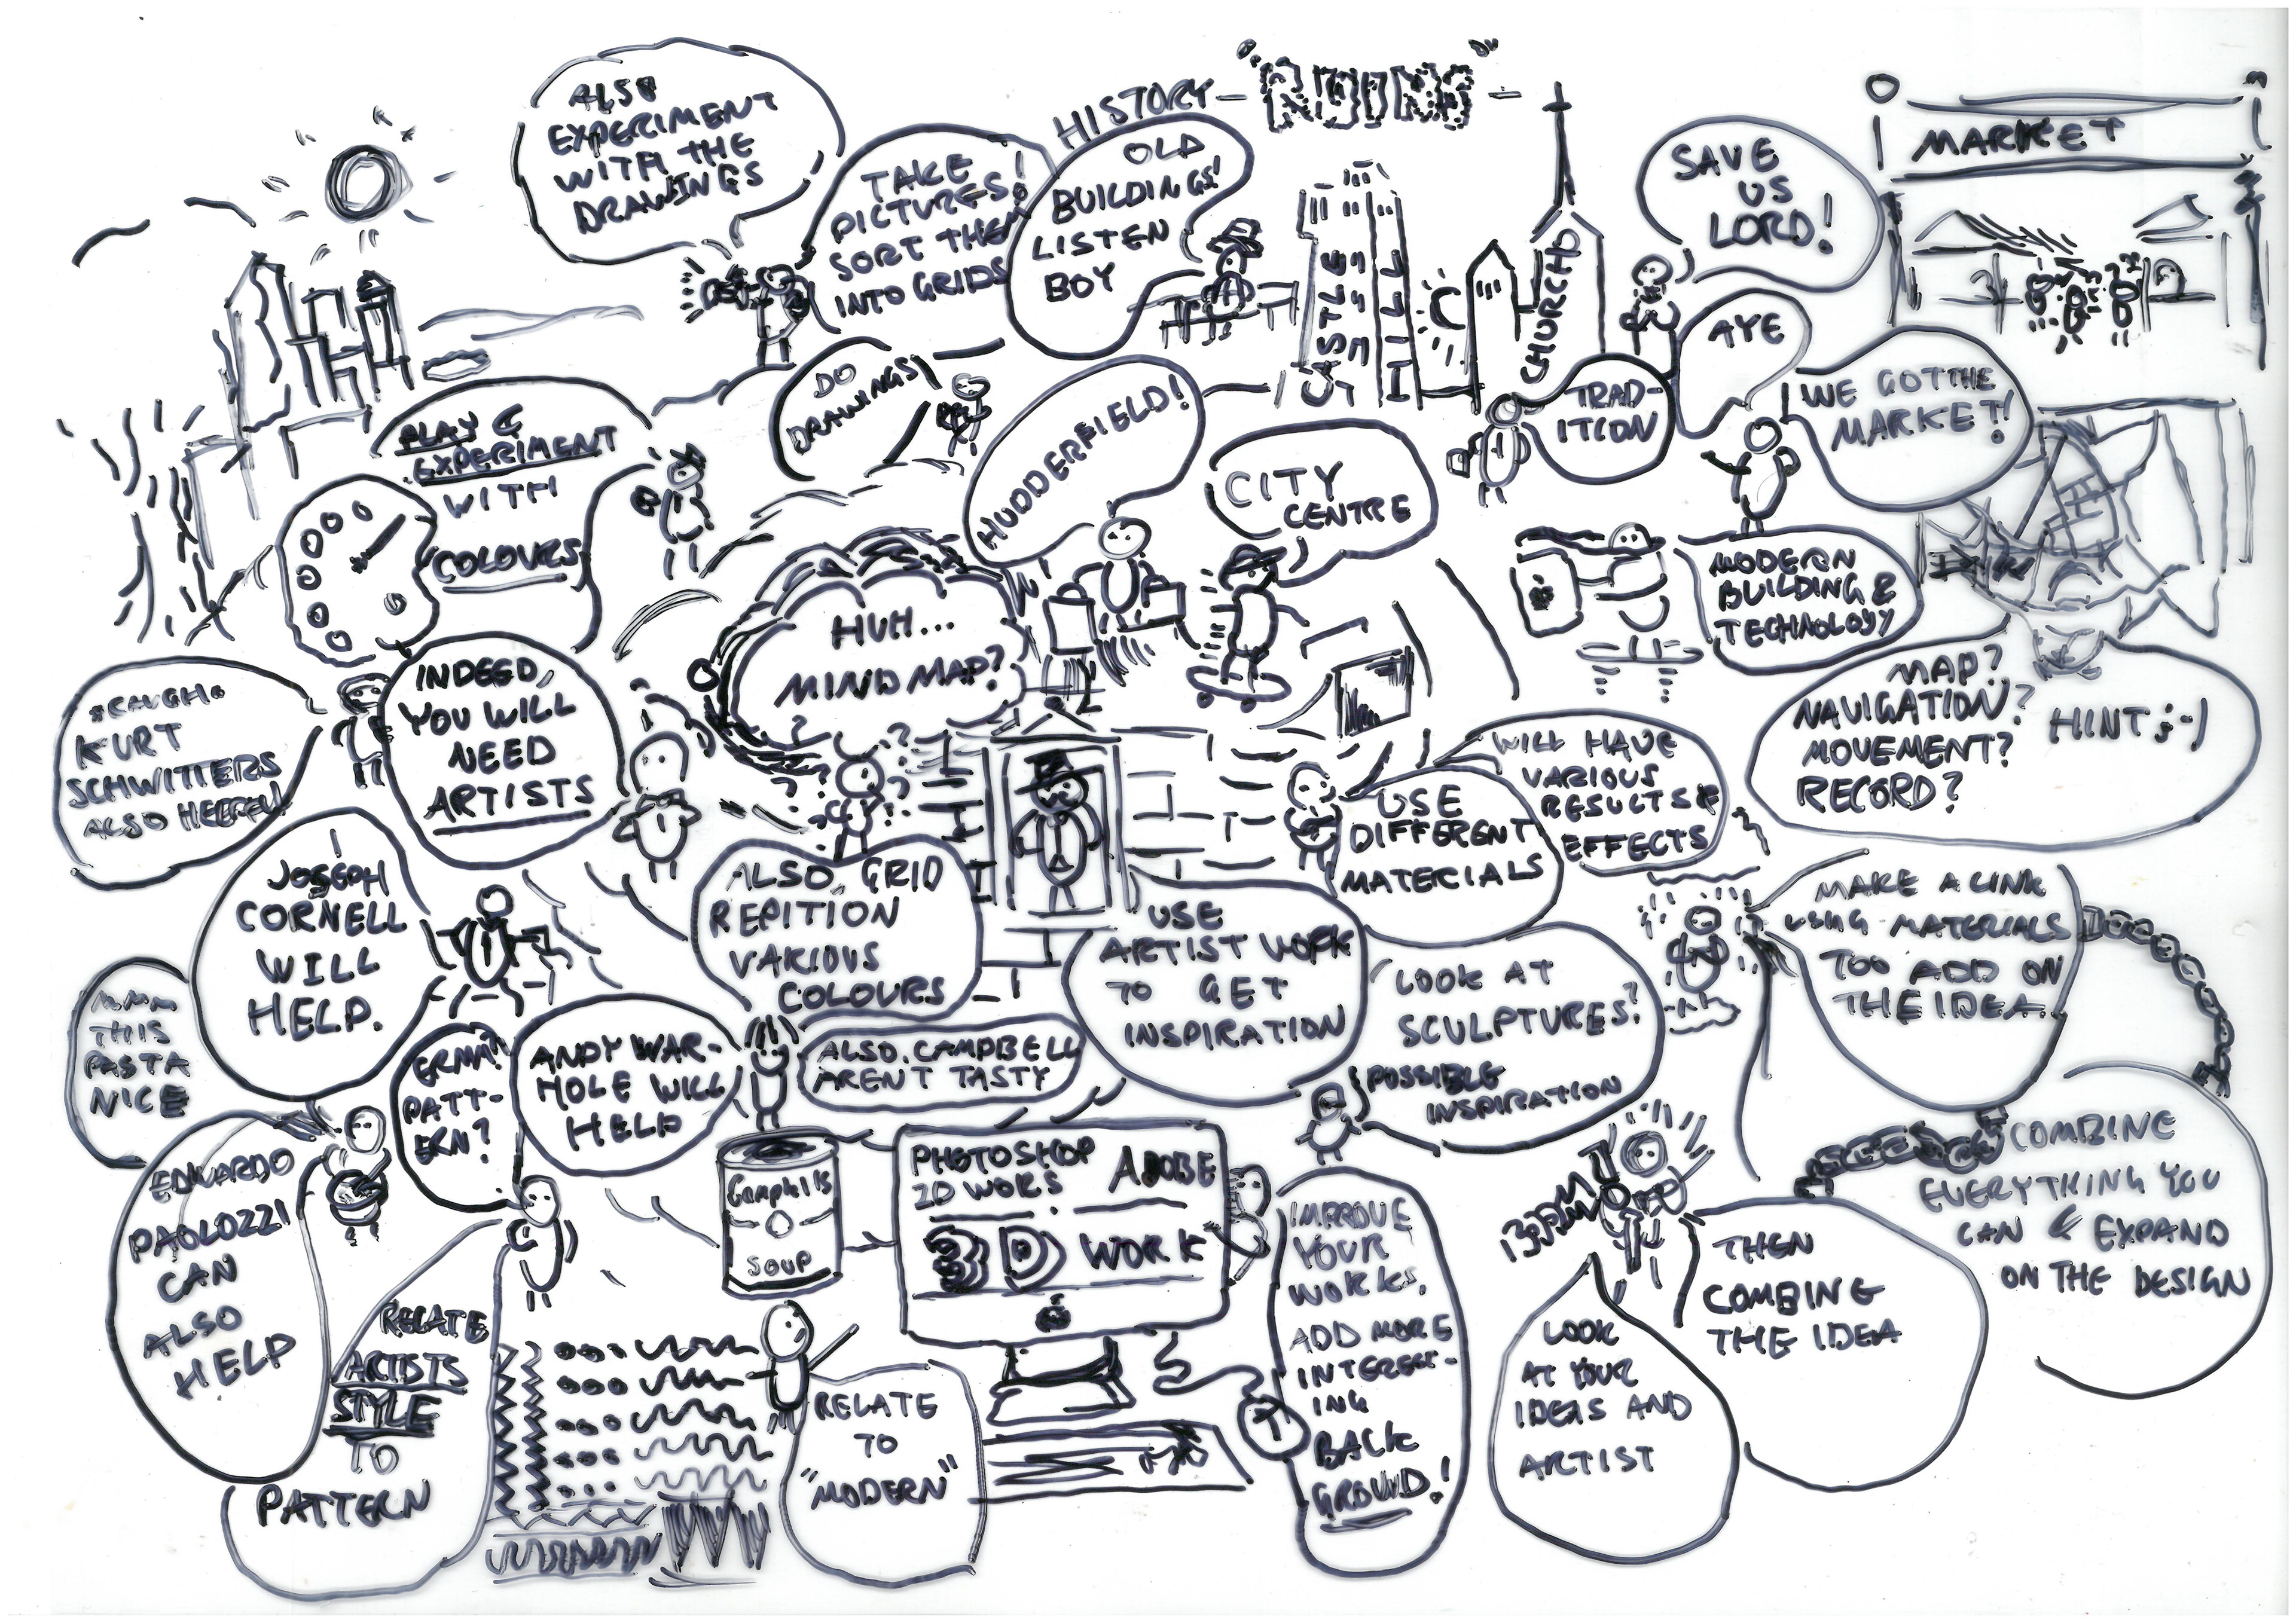 ALSO
EXPERIMENT
WITH THE
DRAWINGS
TAKE
PICTURES!
SORT THEM
INTO GRIDS
HISTORY - "RUINS" -
OLD
BUILDINGS!
LISTEN
BOY
CASTLE
HILL
CHURCH
SAVE
US
LORD!
MARKET
PLAY &
EXPERIMENT
WITH
COLOURS
DO
DRAWINGS
HUDDERFIELD!
CITY
CENTRE
TRAD-
ITION
AYE
WE GOT THE
MARKET!
MODERN
BUILDING &
TECHNOLOGY
HUH...
MIND MAP?
MAP?
NAVIGATION?
MOVEMENT?
RECORD?
HINT ;-)
*CAUGH*
KURT
SCHWITTERS
ALSO HELPFUL
INDEED,
YOU WILL
NEED
ARTISTS
WILL HAVE
VARIOUS
RESULTS &
EFFECTS
USE
DIFFERENT
MATERIALS
JOSEPH
CORNELL
WILL
HELP.
ALSO, GRID
REPITION
VARIOUS
COLOURS
USE
ARTIST WORK
TO GET
INSPIRATION
LOOK AT
SCULPTURES?
POSSIBLE
INSPIRATION
MAKE A LINK
USING MATERIALS
TOO ADD ON
THE IDEA
MMM
THIS
PASTA
NICE
ERMM?
PATT-
ERN?
ANDY WAR-
HOLE WILL
HELP
ALSO, CAMPBELL
ARENT TASTY
EDUARDO
PAOLOZZI
CAN
ALSO
HELP
SOUP
PHOTOSHOP
2D WORS
ADOBE
3D WORK
IMPROVE
YOUR
WORKS.
ADD MORE
INTEREST-
ING
BACK
GROUND!
COMBINE
EVERYTHING YOU
CAN & EXPAND
ON THE DESIGN
THEN
COMBING
THE IDEA
LOOK
AT YOUR
IDEAS AND
ARTIST
RELATE
ARTISTS
STYLE
TO
PATTERN
RELATE
TO
"MODERN"